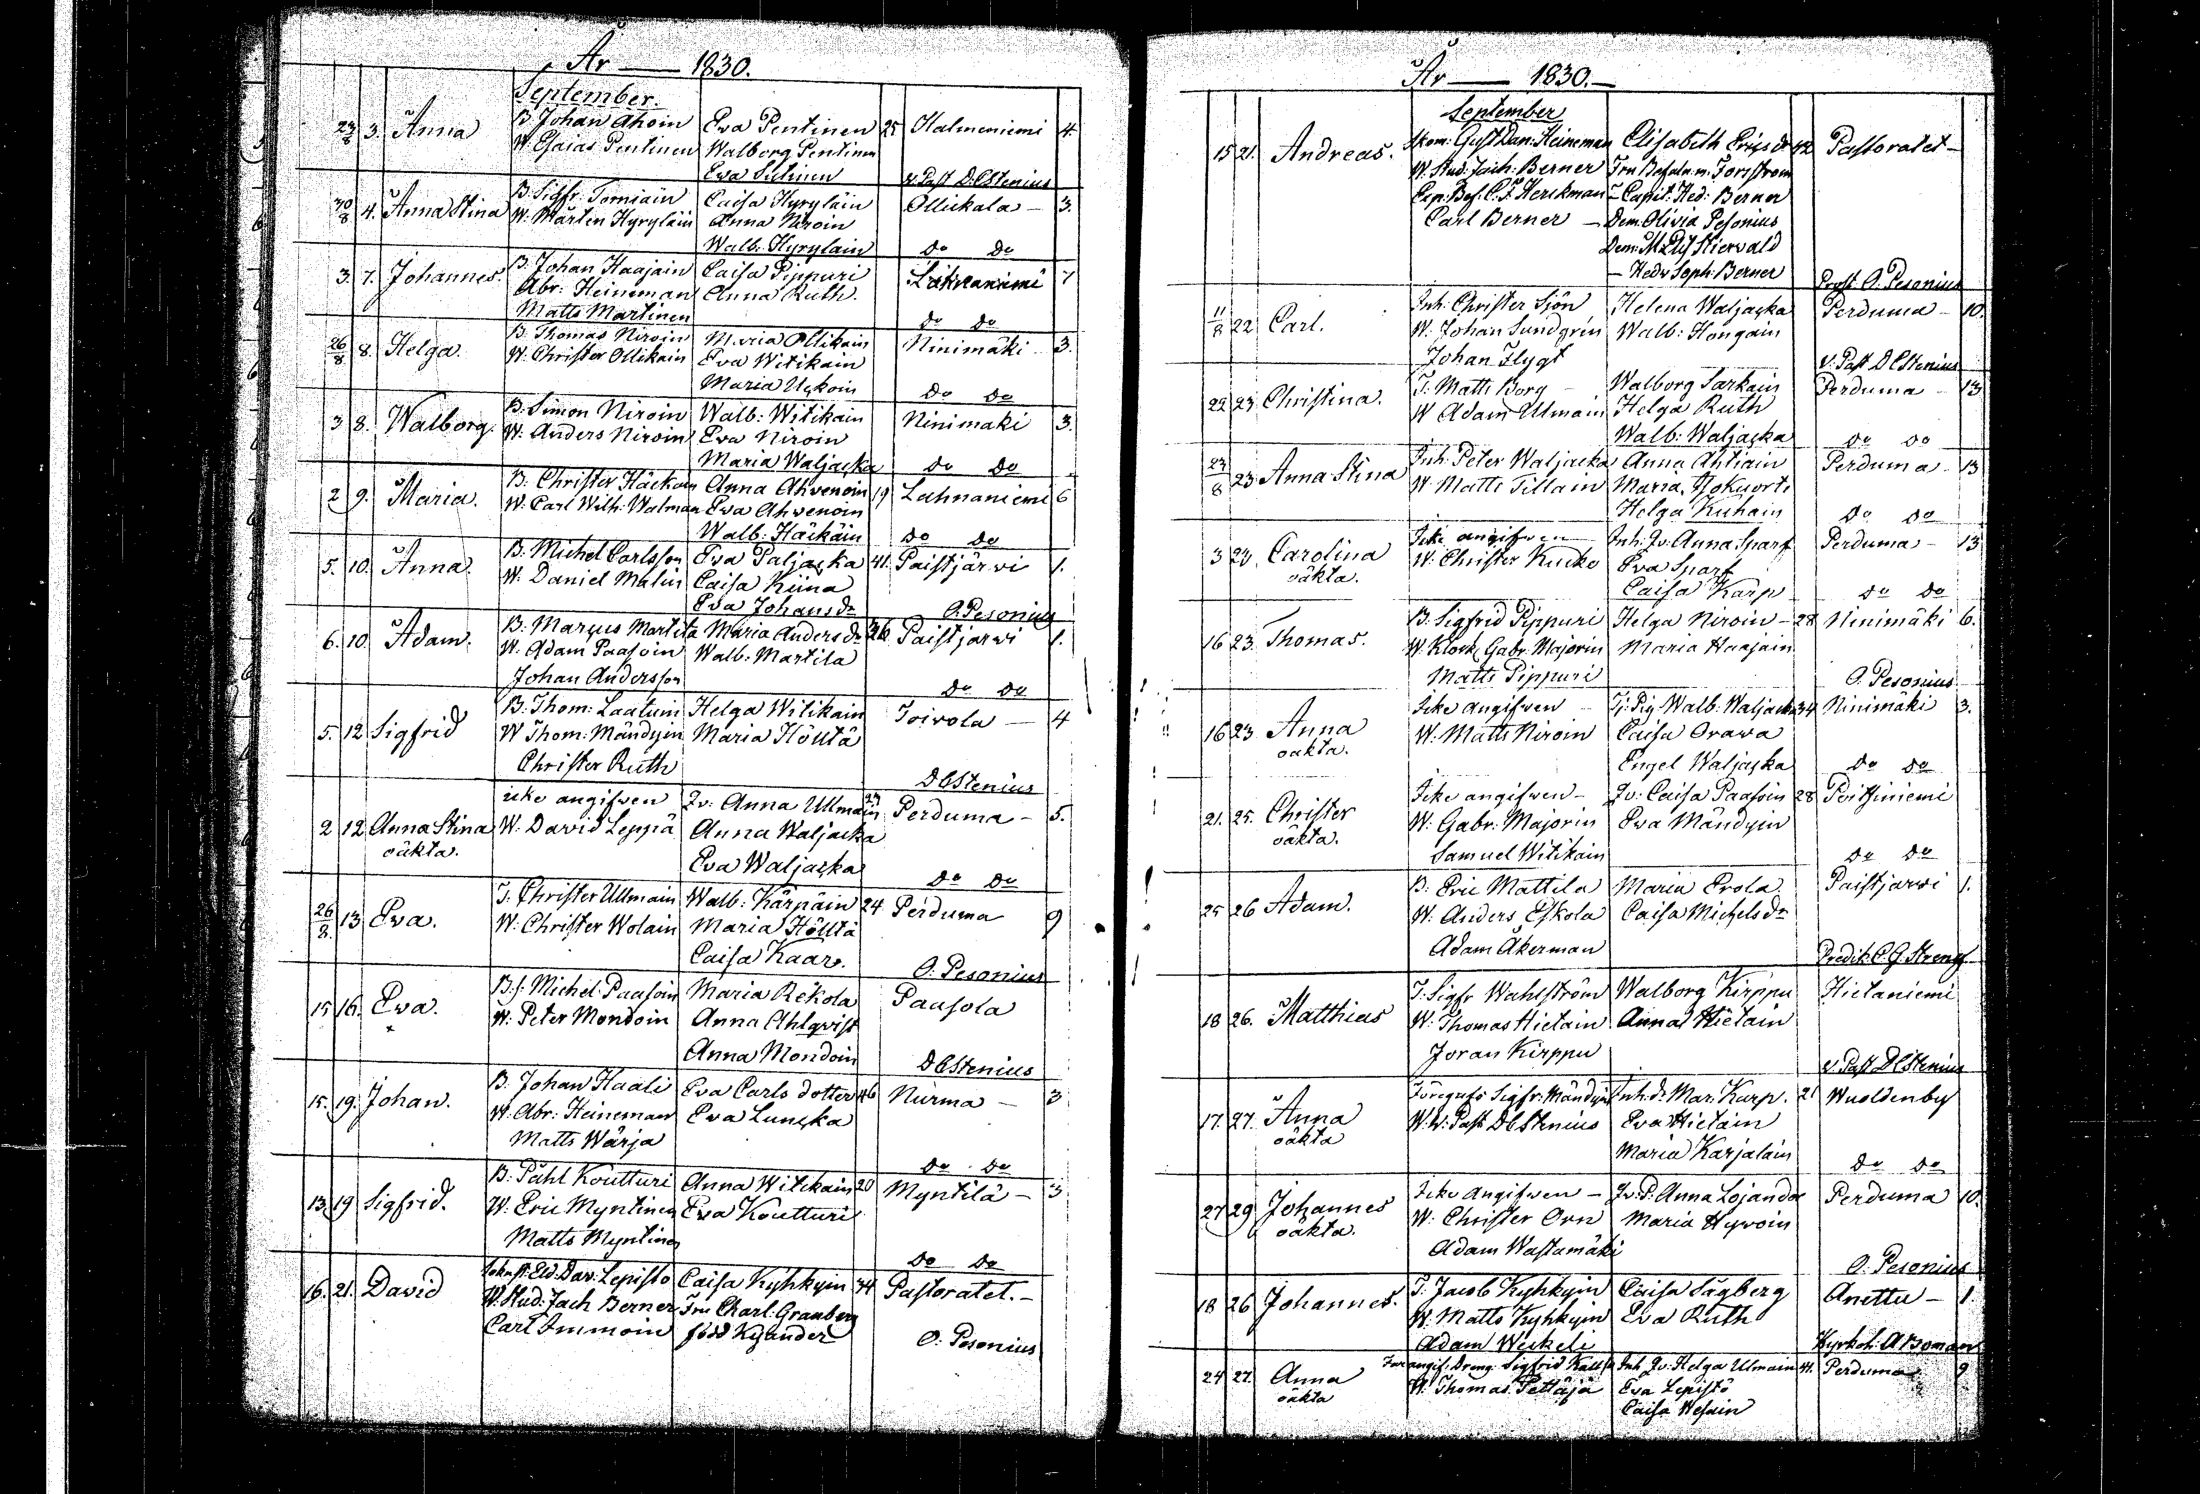 År — 1830.
September.
23/8 3. Anna B. Johan Ahoin Eva Pentinen 25 Halmeniemi 4
W. Esaias Pentinen Walborg Pentinen
Eva v. Past. D. Estenius
30/8 4. Anna Stina B. Sigfr. Torniain Caisa Hyryläin Ollickala — 3.
W. Mårten Hyryläin Anna Niroin
Walb: Hyryläin Do Do
3. 7. Johannes. B. Johan Haajain Caisa Pippuri 7
Abr: Heineman Anna Ruth.
Matts Martinen Do Do
26/8 8. Helga. B. Thomas Niroin Maria Ollikain Ninimäki 3.
W. Christer Ollikain Eva Witikain
Maria Uskoin Do Do
3 8. Walborg. B. Simon Niroin Walb: Witikain Ninimäki 3.
W. Anders Niroin Eva Niroin
Maria Waljacka Do Do
2 9. Maria. B. Christer Häckäin Anna Ahvenoin 19 Lahnaniemi 6
W. Carl Wilh. Walman Eva Ahvenoin
Walb. Häckäin Do Do
5. 10. Anna. B. Michel Carlsson Eva Paljacka 41. Paistjärvi 1.
W. Daniel Malin Caisa Kiina
Eva Johansdr O. Pesonius
6. 10. Adam. B. Marcus Martila Maria Andersdr 36 Paistjärvi 1.
W. Adam Paasoin Walb: Martila
Johan Andersson Do Do
5. 12 Sigfrid B. Thom: Laatuin Helga Witikain Toivola — 4
W Thom: Mändyin Maria Hölttä
Christer Ruth D Estenius
2 12 Anna Stina icke angifven Qv: Anna Ullmain Perduma — 5.
oäkta. W. David Leppä Anna Waljacka
Eva Waljacka Do Do
26/8 13 Eva. T. Christer Ullmain Walb: Kärpäin 24 Perduma 9
W: Christer Wolain Maria Hölttä
Caisa Kaar. O. Pesonius
15 16. Eva. B.s. Michel Paasoin Maria Rekola Paasola
W: Peter Mondoin Anna Ahlqvist
Anna Mondoin D Estenius
15. 19. Johan. B. Johan Haali Eva Carls dotter 46 Nurma — 3
W. Abr: Heineman Eva Luncka
Matts Wärja Do Do
13. 19 Sigfrid. B. Påhl Koutturi Anna Witikain 20 Myntilä — 3
W. Eric Myntinen Eva Koutturi
Matts Myntinen Do Do
16. 21. David Dav: Lepistö Caisa Kyhkyin 34 Pastoratet. —
W. Stud: Zach Berner Fru Charl: Granberg
Carl Immoin född Kyander O. Pesonius
År — 1830. —
September
15 21. Andreas. Gust Dan: Heineman Elisabeth Ericsdr 42 Pastoratet —
W. Stud: Zach: Berner Fru Forsström
C. F. Herckman — Capit: Hed: Berner
Carl Berner — Dem: Olivia Pesonius
Dem: Stiervald
— Hedv Soph: Berner Prost O. Pesonius
11/8 22 Carl. Inh: Christer Sjön Helena Waljacka Perduma — 10.
W. Johan Sundgrén Walb: Hongain
Johan Flygt v. Past D Estenius
22 23 Christina. T. Matts Borg — Walborg Sarkain Perduma — 13
W Adam Ulmain Helga Ruth
Walb: Waljacka Do Do
23/8 23 Anna Stina Inh: Peter Waljacka Anna Ahtiain Perduma — 13
W. Matts Tillain Maria
Helga Kuhain Do Do
3 23. Carolina Icke angifven Inh: Qv: Anna Sparf Perduma — 13
oäkta. W. Christer Kucko Eva Sparf
Caisa Karp Do Do
16 23. Thomas. B. Sigfrid Pippuri Helga Niroin — 28 Ninimäki 6.
W. Klock. Gabr: Majorin Maria Haajain
Matts Pippuri O. Pesonius
16 23. Anna Icke angifven Tj: Pig Walb: Waljacka 34 Ninimäki 3.
oäkta. W. Matts Niroin Caisa Orava
Engel Waljacka Do Do
21. 25. Christer Icke angifven — Qv: Caisa Paasoin 28
oäkta. W. Gabr: Majorin Eva Mändyin
Samuel Witikain Do Do
25 26 Adam. B. Eric Mattila Maria Erola. Paistjärvi 1.
W. Anders Eskola Caisa Michelsdr
Adam Åkerman Predik. C. G. Streng
18 26. Matthias T. Sigfr Wahlström Walborg Kirppu Hietaniemi
W. Thomas Hietain Anna Hietain
Joran Kirppu v. Past D Estenius
17. 27. Anna Sigfr: Mändyin Inh: dr Mar: Karp. 21 Wuoldenby
oäkta W. v: Past D Estenius Eva Hietain
Maria Karjalain Do Do
27 29 Johannes Icke angifven — Qv. P: Anna Lojander Perduma 10.
oäkta. W. Christer Orn Maria Hyvoin
Adam Wastamäki O. Pesonius
18 26 Johannes. T. Jacob Kyhkyin Caisa Sågberg Anettu — 1
W. Matts Kyhkyin Eva Ruth
Adam Weikeli A Boman
24 27. Anna Dreng: Sigfrid Inh Qv: Helga Ulmain 41. Perduma 9
oäkta W. Thomas Pettäjä Eva Lepistö
Caisa Wesain